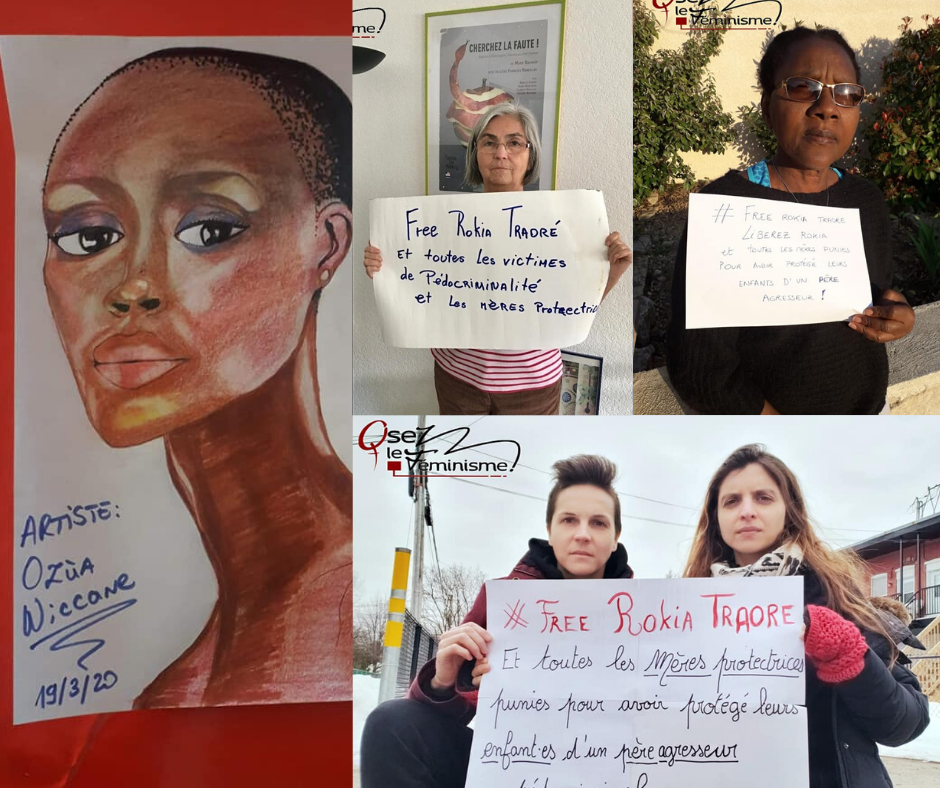 ARTISTE:
OZÙA
WICCANE
19/3/20
me!
CHERCHEZ LA FAUTE !
Free Rokia TRAORÉ
ET toutes Les victimes
de Pédocriminalité
et Les mères Protectric
Osez
le
Féminisme!
# FREE ROKIA TRAORE
LIBEREZ ROKIA
et TOUTES LES MÈRES PUNIES
POUR AVOIR PROTÉGÉ LEURS
ENFANTS D'UN PÈRE
AGRESSEUR !
Osez
le
Féminisme!
# FREE ROKIA TRAORE
Et toutes les Mères protectrices
punies pour avoir protégé leurs
enfant·es d'un père agresseur